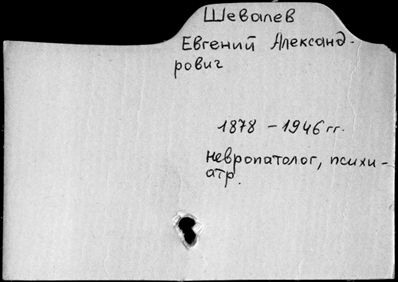 Шевалев
Евгений Александ-
рович
1878 - 1946 гг.
невропатолог, психи-
атр.